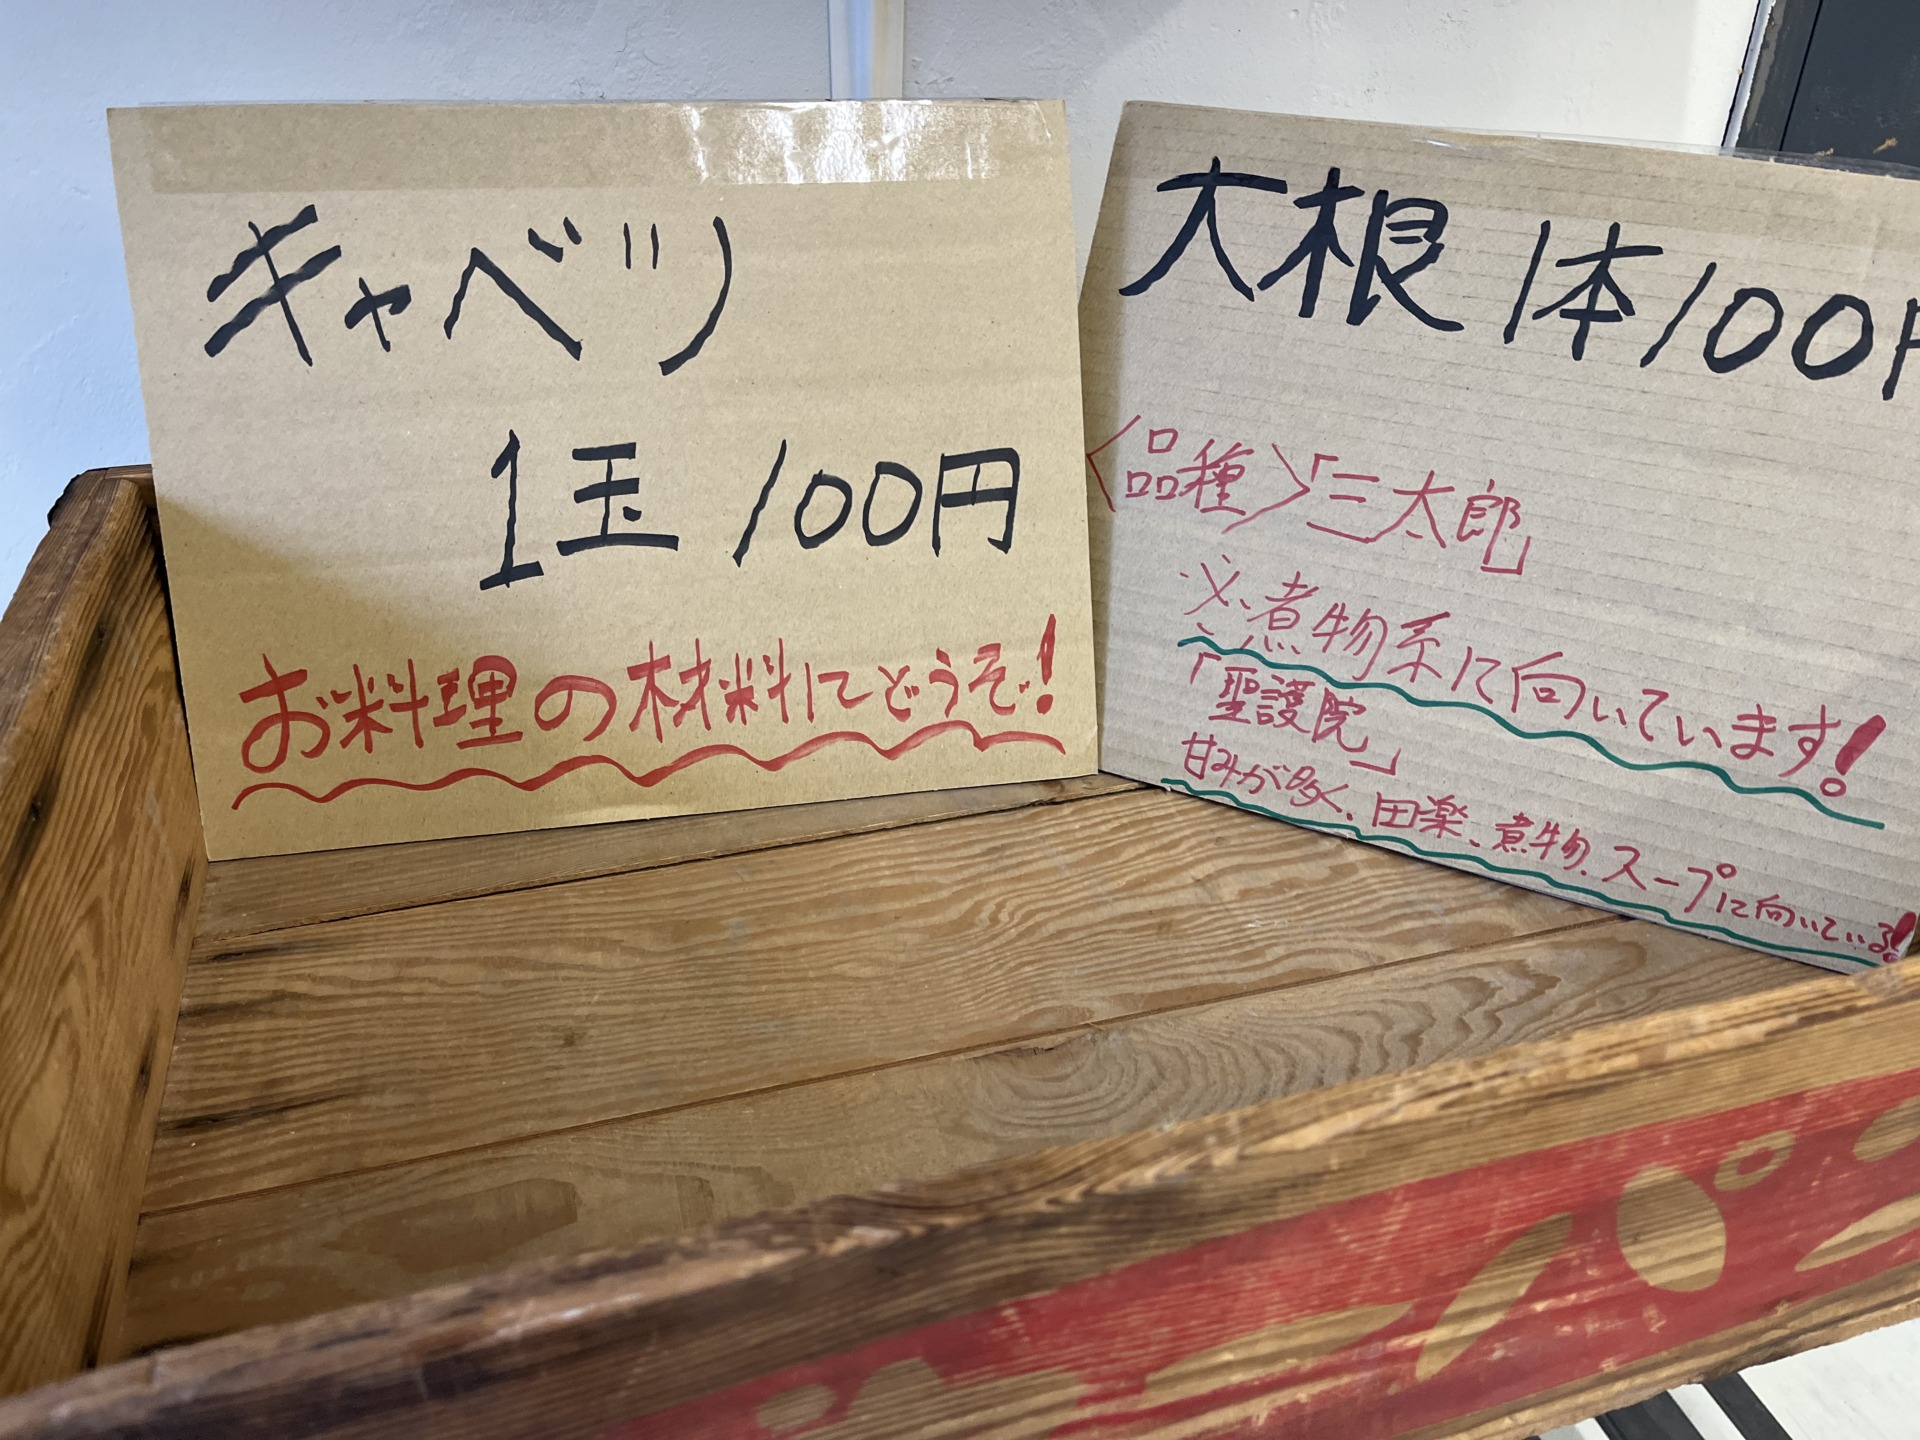 キャベツ
1玉 100円
お料理の材料にどうぞ!
大根 1本100円
〈品種〉「三太郎」
※煮物系に向いています!
「聖護院」
甘みが多く、田楽、煮物、スープに向いている!